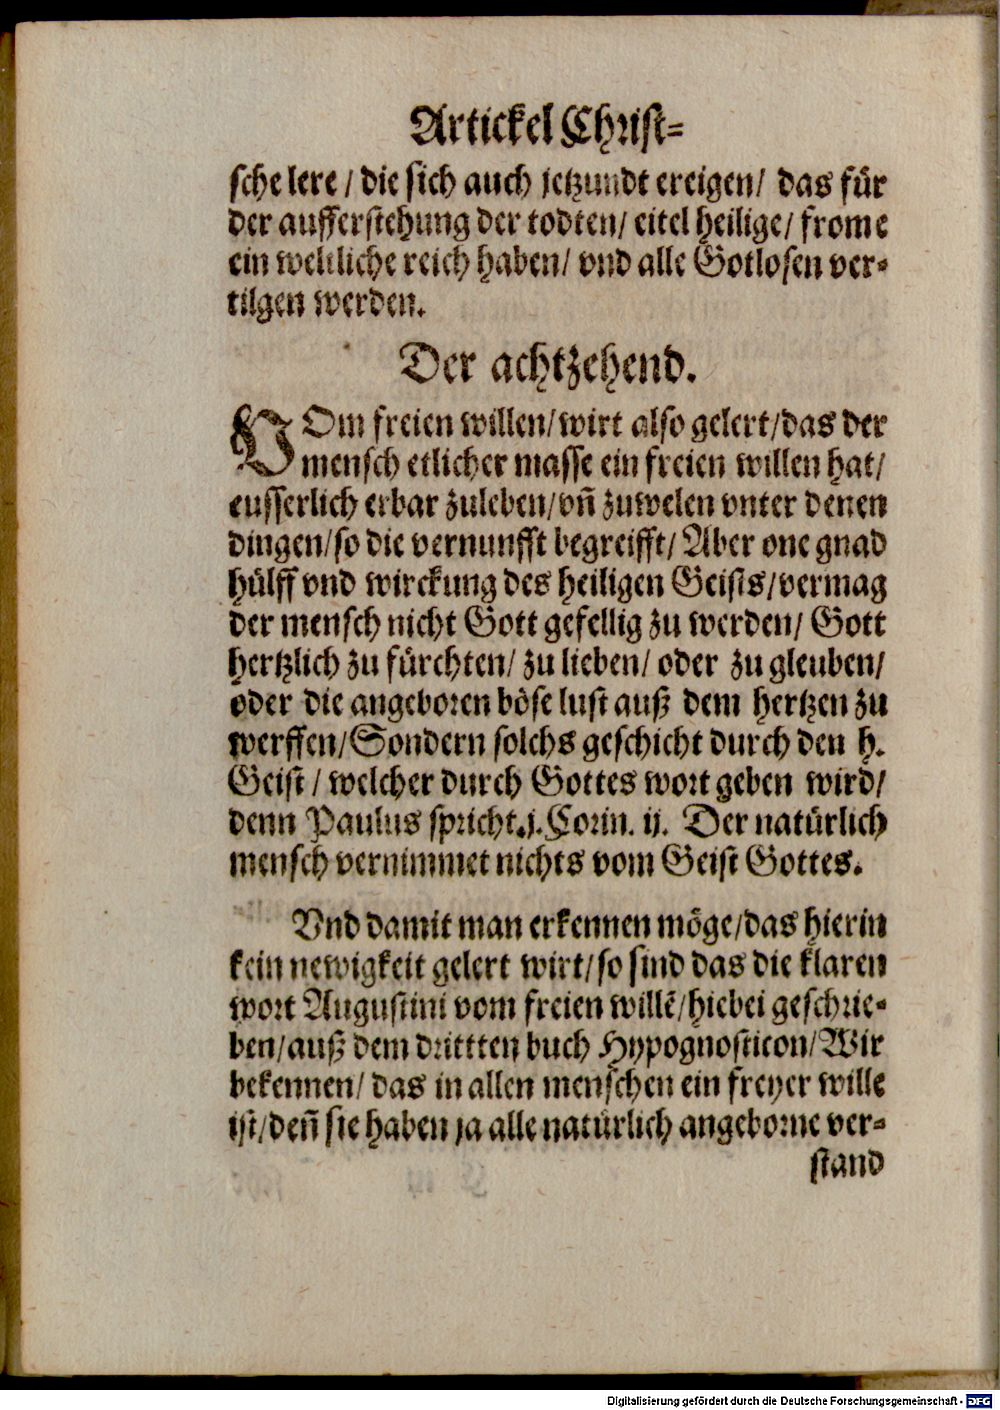 Artickel Christ=
sche lere / die sich auch jetzundt ereigen/ das für
der aufferstehung der todten/ eitel heilige/ frome
ein weltliche reich haben/ vnd alle Gotlosen ver=
tilgen werden.
Der achtzehend.
VOm freien willen/wirt also gelert/das der
mensch etlicher masse ein freien willen hat/
eusserlich erbar zuleben/vn̄ zuwelen vnter denen
dingen/so die vernunfft begreifft/ Aber one gnad
hülff vnd wirckung des heiligen Geists/vermag
der mensch nicht Gott gefellig zu werden/ Gott
hertzlich zu fürchten/ zu lieben/ oder zu gleuben/
oder die angeboren böse lust auß dem hertzen zu
werffen/Sondern solchs geschicht durch den h.
Geist / welcher durch Gottes wort geben wird/
denn Paulus spricht.j.Corin. ij. Der natürlich
mensch vernimmet nichts vom Geist Gottes.
Vnd damit man erkennen möge/das hierin
kein newigkeit gelert wirt/so sind das die klaren
wort Augustini vom freien willē/hiebei geschrie=
ben/auß dem drittten buch Hypognosticon/Wir
bekennen/ das in allen menschen ein freyer wille
ist/den̄ sie haben ja alle natürlich angeborne ver=
stand
Digitalisierung gefördert durch die Deutsche Forschungsgemeinschaft - DFG